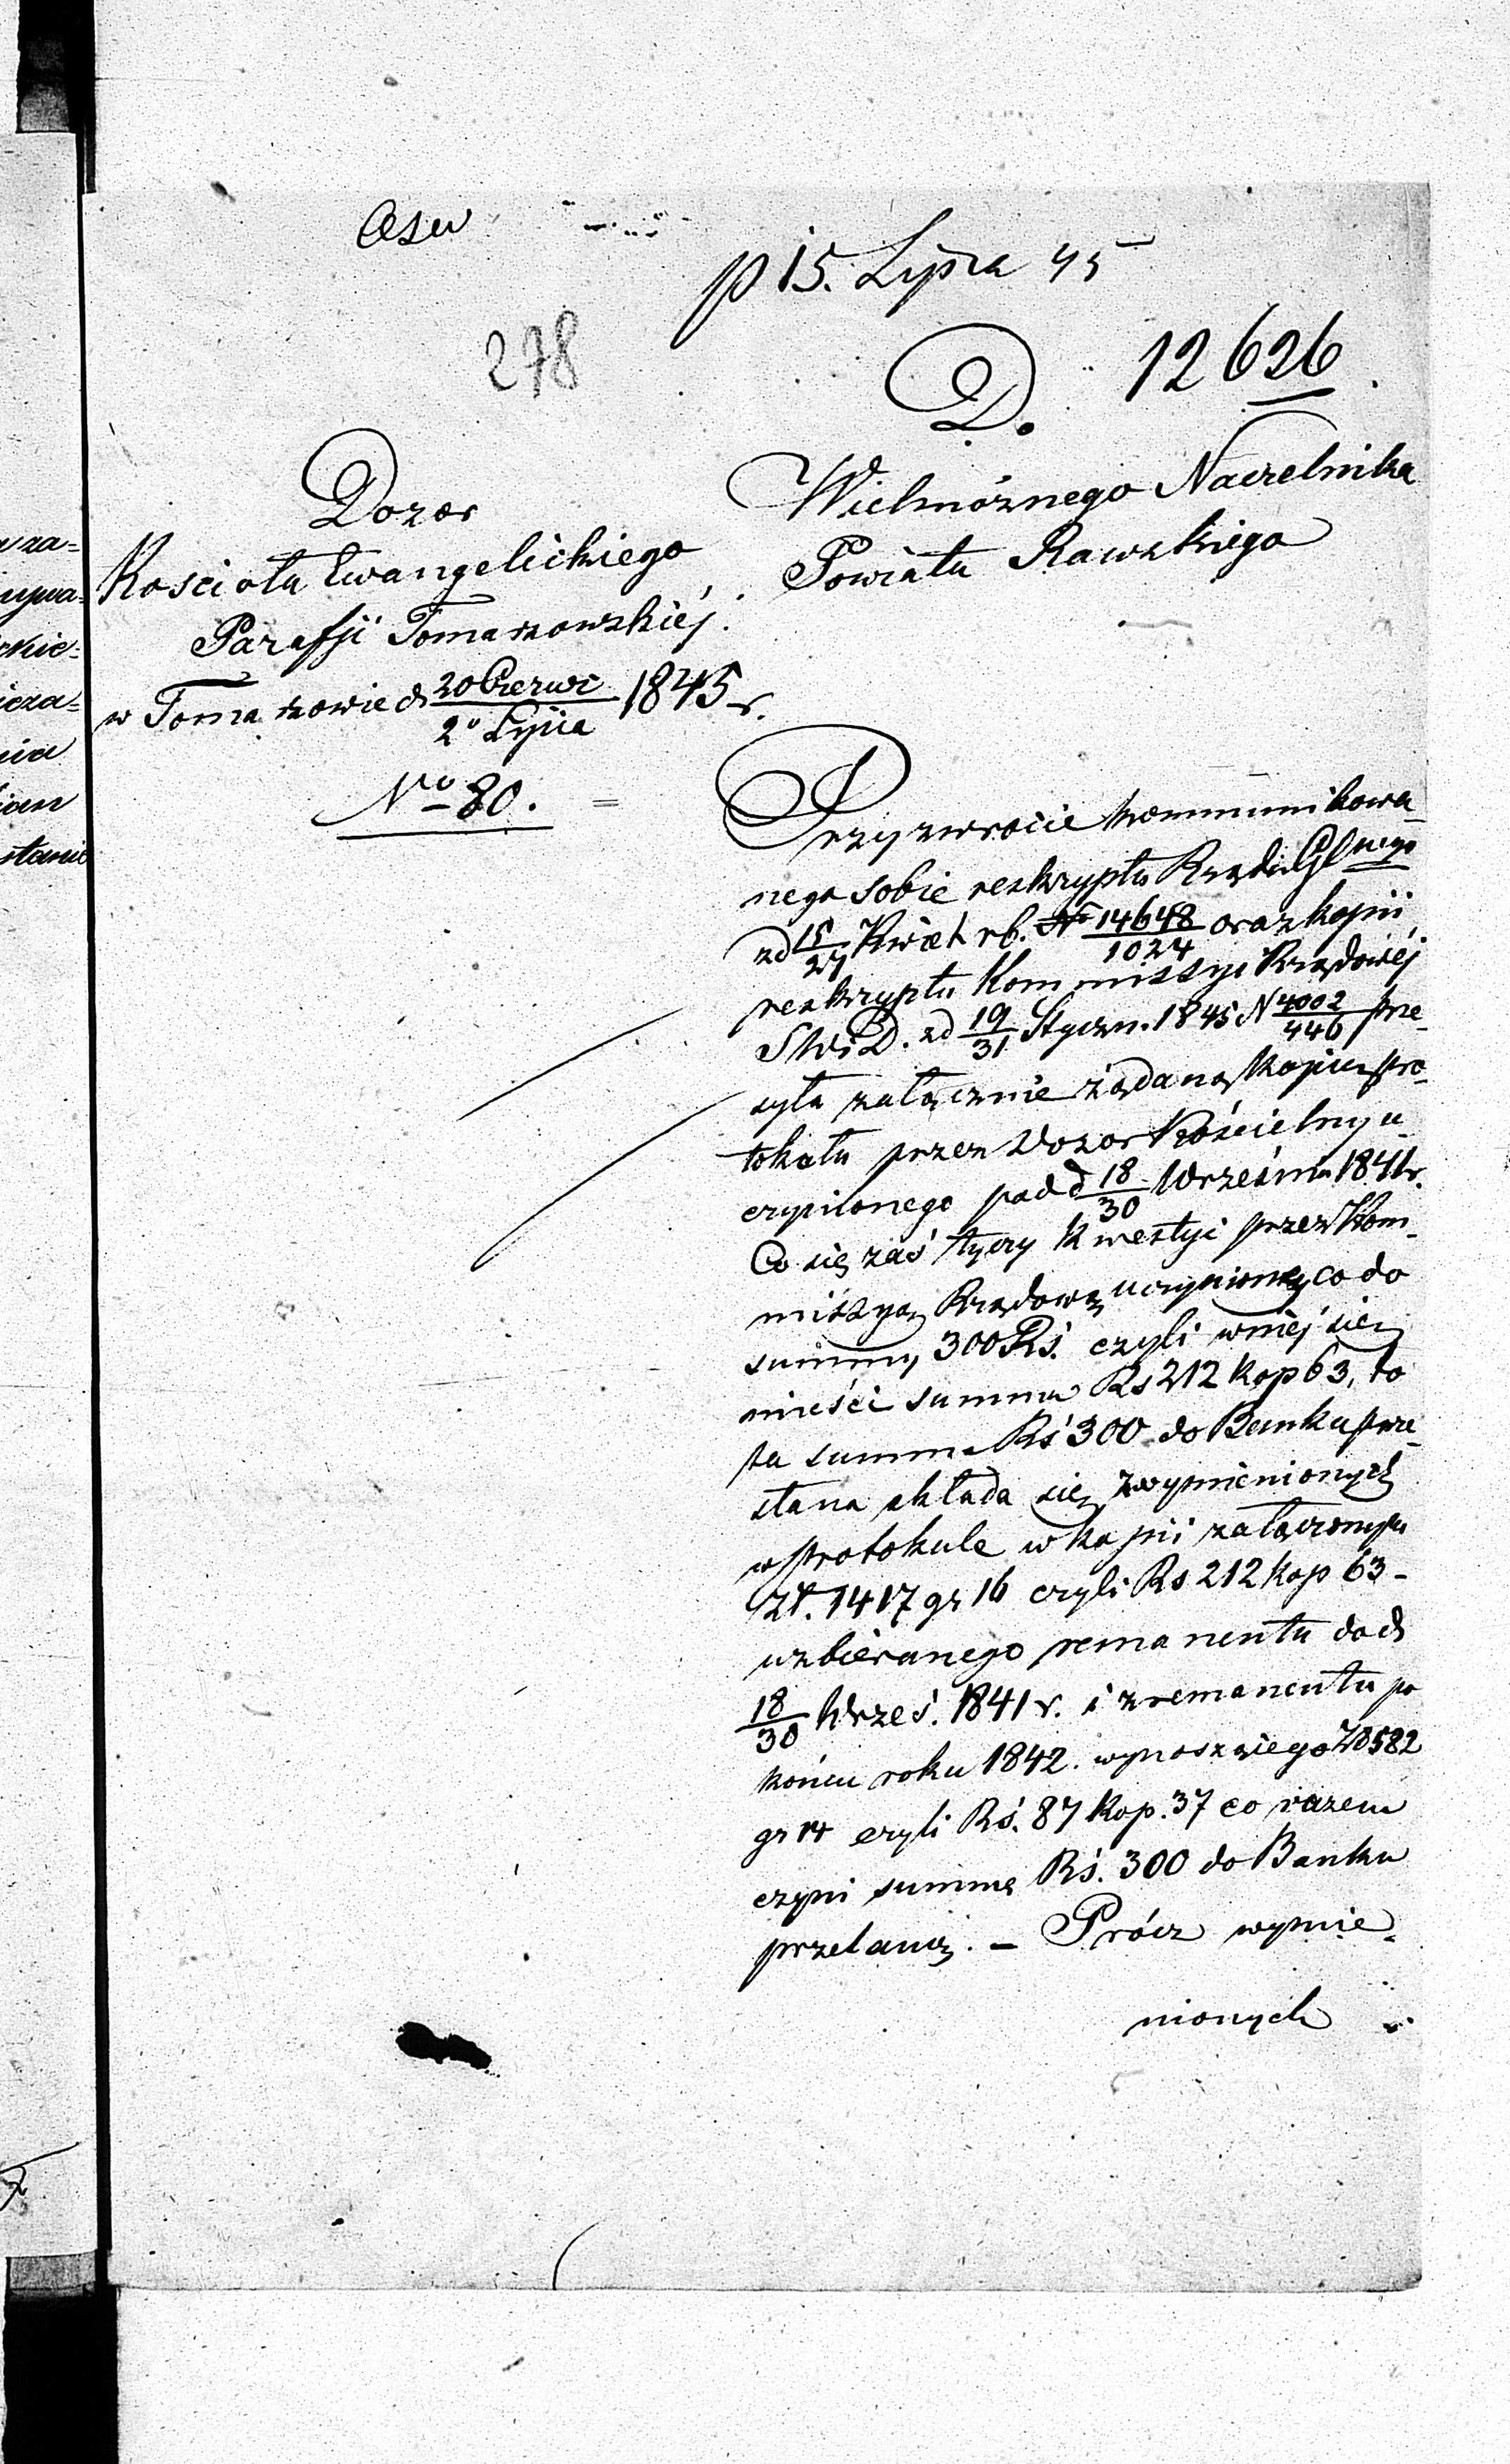 p 15. Lipca 45
278
12626
D.
Wielmożnego Naczelnika
Powiatu Rawskiego
Dozor
Kościoła Ewangelickiego
Parafji Tomaszowskiéj.
w Tomaszowie d 20 Czerwc / 2º Lipca 1845 r.
No 80.
Przy zwrocie kommunikowa-
nego sobie reskryptu Rządu Gubnego
zd 15/27 Kwiet. rb. N 14648/1024 oraz kopii
reskryptu Kommissyi Rządowéj
SWiD. zd 19/31 Styczn. 1845 N 4002/446 prze-
syła załącznie żądaną kopią pro-
tokółu przez Dozor Kościelny u-
czynionego pod d 18/30 Września 1841 r.
Co się zaś tyczy kwestyi przez Kom-
missyą Rządową uczynioney co do
summy 300 Rś. czyli w niéj się
mieści summa Rs 212 kop 63, to
ta summa Rś 300 do Banku prze-
słana składa się z wymienionych
w protokule w kopii załączonym
Zł. 1417 gr 16 czyli Rs 212 kop 63 -
uzbieranego remanentu do d
18/30 Wrześ. 1841 r. i z remanentu po
końcu roku 1842. wynoszącego Zł 582
gr 14 czyli Rś. 87 kop. 37 co razem
czyni summę Rś. 300 do Banku
przelaną. - Prócz wymie-
nionych